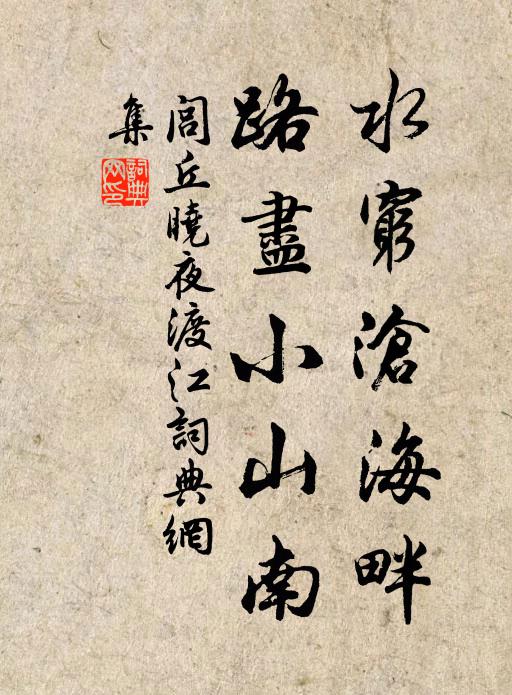 水窮滄海畔
路盡小山南
閭丘曉夜渡江詞典網
集
詞典網印